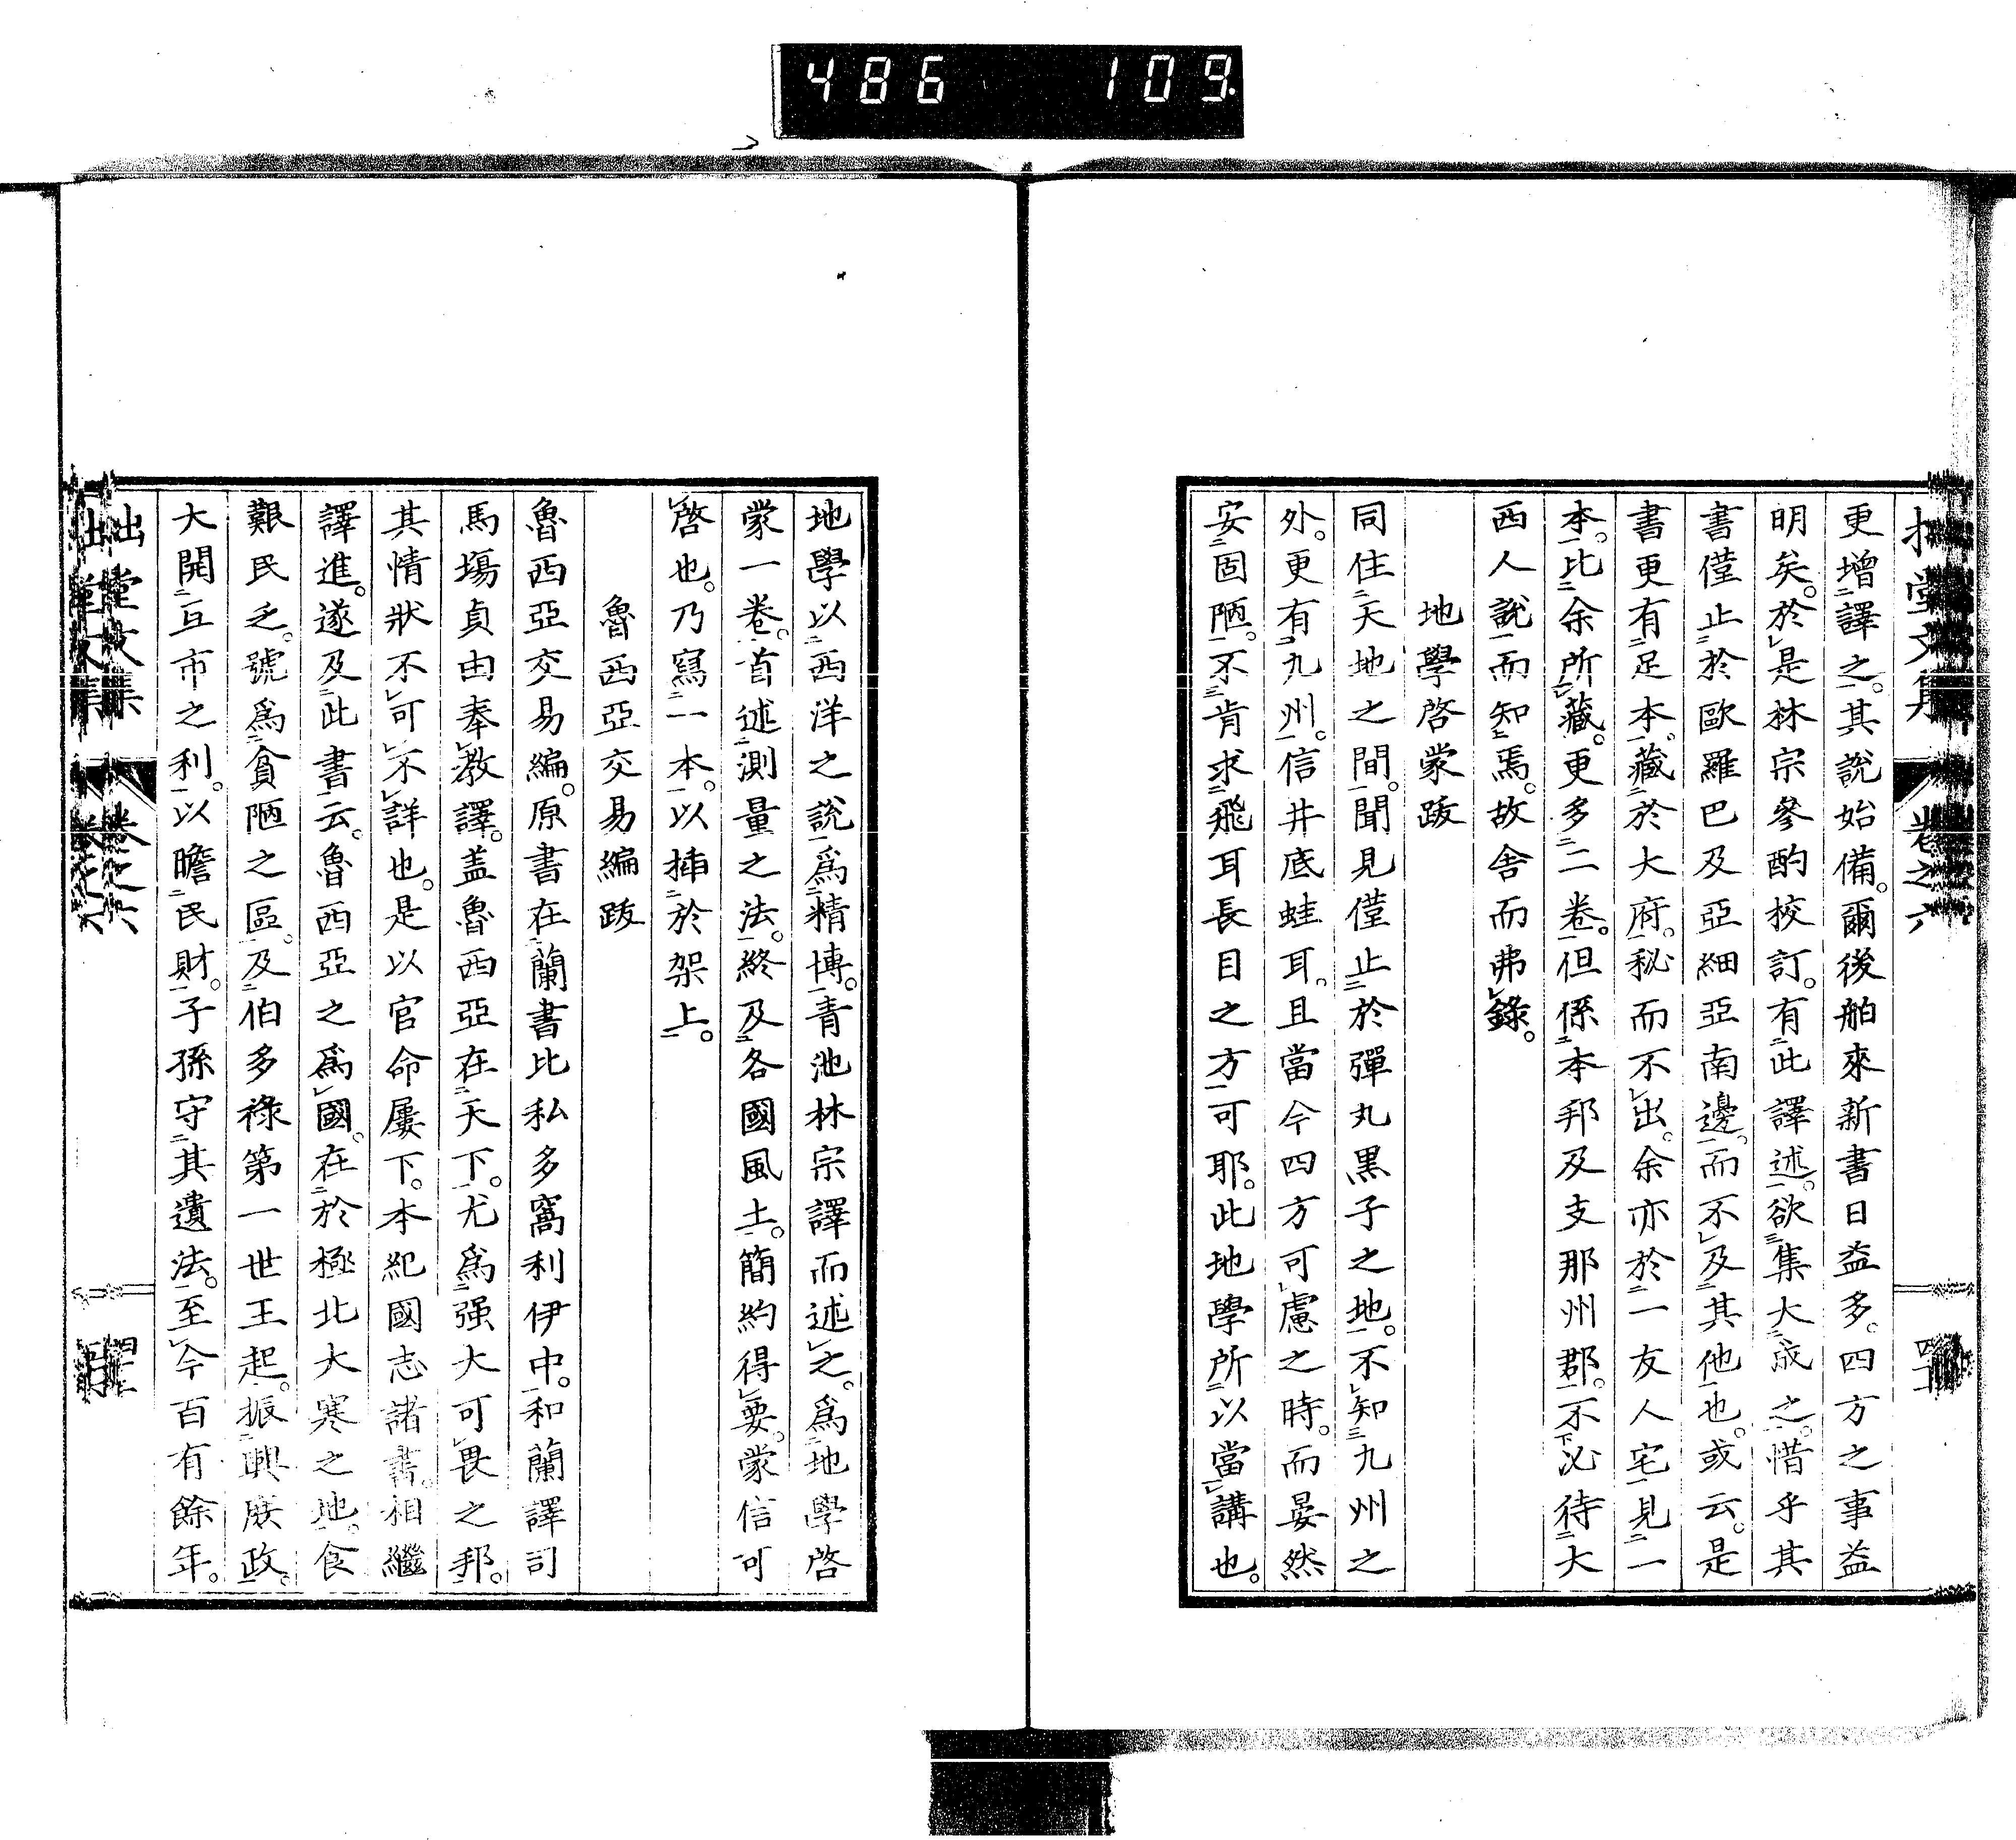 486 109.
堂文集 卷之六
更增譯之。其說始備。爾後舶來新書日益多。四方之事益
明矣。於是林宗參酌挍訂。有此譯述。欲集大成之。惜乎其
書僅止於歐羅巴及亞細亞南邊。而不及其他也。或云。是
書更有足本。藏於大府。秘而不出。余亦於一友人宅見一
本。比余所藏。更多二卷。但係本邦及支那州郡。不必待大
西人說而知焉。故舍而弗錄。
地學啓蒙跋
同住天地之間。聞見僅止於彈丸黑子之地。不知九州之
外。更有九州。信井底蛙耳。且當今四方可慮之時。而晏然
安固陋。不肯求飛耳長目之方可耶。此地學所以當講也。
地學以西洋之說爲精博。青池林宗譯而述之。爲地學啓
蒙一卷。首述測量之法。終及各國風土。簡約得要。蒙信可
啓也。乃寫一本。以揷於架上。
魯西亞交易編跋
魯西亞交易編。原書在蘭書比私多窩利伊中。和蘭譯司
馬塲貞由奉教譯。盖魯西亞在天下。尤爲强大可畏之邦。
其情狀不可不詳也。是以官命屢下。本紀國志諸書。相繼
譯進。遂及此書云。魯西亞之爲國。在於極北大寒之地。食
艱民乏。號爲貧陋之區。及伯多祿第一世王起。振興廢政。
大開互市之利。以瞻民財。子孫守其遺法。至今百有餘年。
堂文集 卷之六